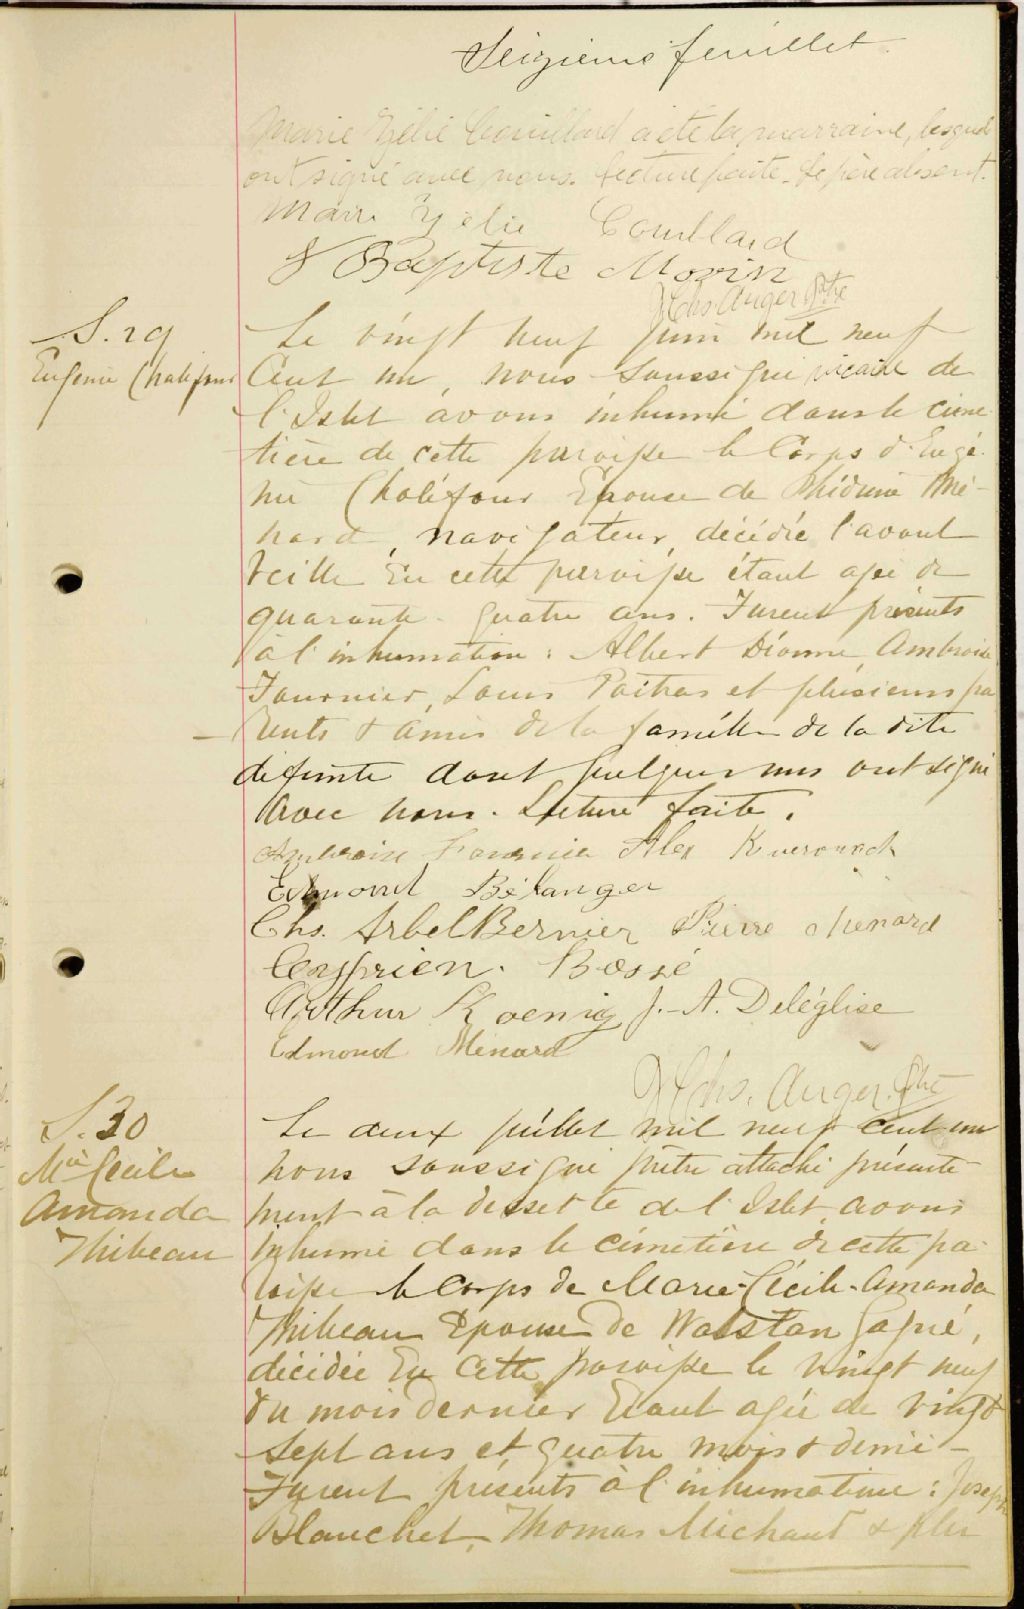 Seizieme feuillet
Marie Zélie Couillard a été la marraine, lesquels
ont signé avec nous. Lecture faite. Le père absent.
Marie Zélie Couillard
J Baptiste Morin
Chs. Auger Ptre
S. 29
Eugenie Chalifour
Le vingt neuf juin mil neuf
Cent un, nous soussigné vicaire de
l'Islet avons inhumé dans le cime-
tière de cette paroisse le Corps d'Eugé-
nie Chalifour Epouse de Phidime Mé-
nard, navigateur, décédée l'avant
veille En cette paroisse étant agée de
quarante-quatre ans. Furent présents
à l'inhumation: Albert Dionne, Ambroise
Fournier, Louis Poitras et plusieurs pa
rents & amis de la famille de la dite
défunte dont quelques uns ont signé
avec nous. Lecture faite.
Ambroise Fournier Alex
Edmond Bélanger
Chs. Arbel Bernier Pierre Menard
Cyprien. Bossé
Arthur Koenig J.-A. Deléglise
Edmond Ménard
Chs. Auger. Ptre
S. 30
Mie Cécile
Amanda
Thibeau
Le deux juillet mil neuf cent un
nous soussigné prêtre attaché présente
ment à la desserte de l'Islet, avons
inhumé dans le cimetière de cette pa-
roisse le Corps de Marie-Cécile-Amanda
Thibeau Epouse de Walstan Gagné,
décédée En Cette paroisse le vingt neuf
du mois dernier Etant agée de vingt
sept ans et quatre mois & demie -
Furent présents à l'inhumation: Joseph
Blanchet, Thomas Michaut & plu